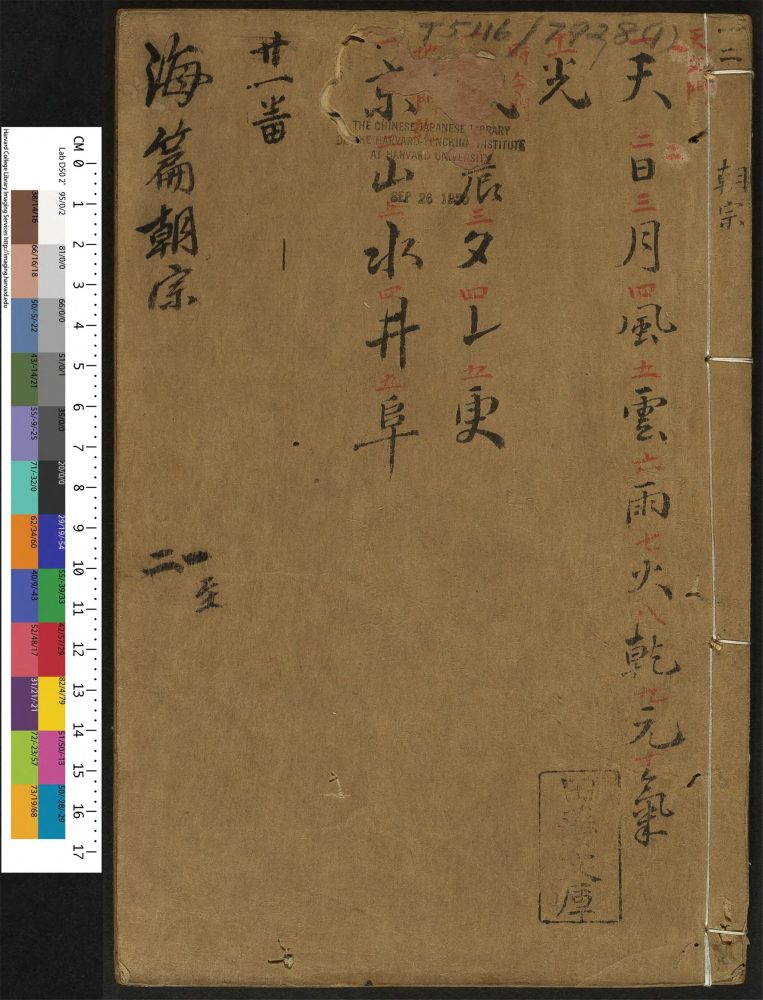 一二
朝宗
天 二 日 三 月 四 風 五 雲 六 雨 七 火 八 乾 九 元 十 氣
光
辰 三 夕 四 上 五 更
一 京 二 山 三 水 四 井 五 阜
廿一番
一
海篇朝宗
一至
二
T5116/7928(4)
THE CHINESE-JAPANESE LIBRARY
OF THE HARVARD-YENCHING INSTITUTE
AT HARVARD UNIVERSITY
SEP 26 19
文庫
CM 0 1 2 3 4 5 6 7 8 9 10 11 12 13 14 15 16 17
Harvard College Library Imaging Services http://imaging.harvard.edu
Lab D50 2°
95/0/2
81/0/0
66/0/0
51/0/1
35/0/0
20/0/0
29/19/-54
55/-39/33
42/57/29
82/4/79
51/50/-13
50/-28/-29
38/14/16
66/16/18
50/-5/-22
43/-14/21
55/-9/-25
71/-32/0
62/34/60
40/9/-43
52/48/17
31/21/-21
72/-23/57
73/19/68